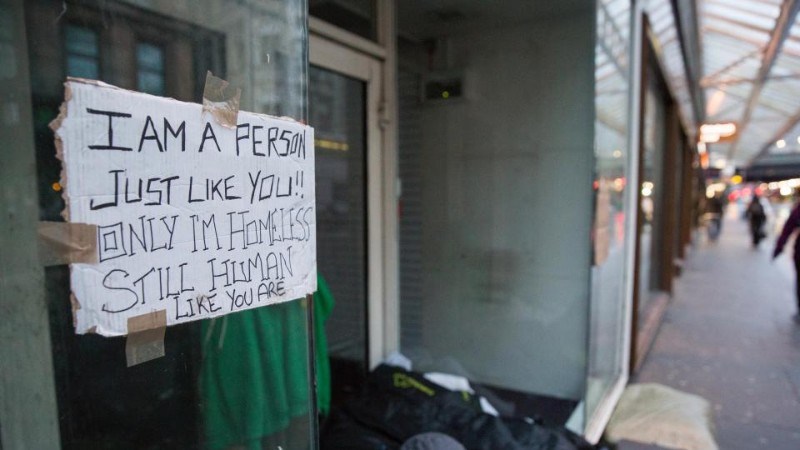 I AM A PERSON
JUST LIKE YOU!!
ONLY I'M HOMELESS
STILL HUMAN
LIKE YOU ARE